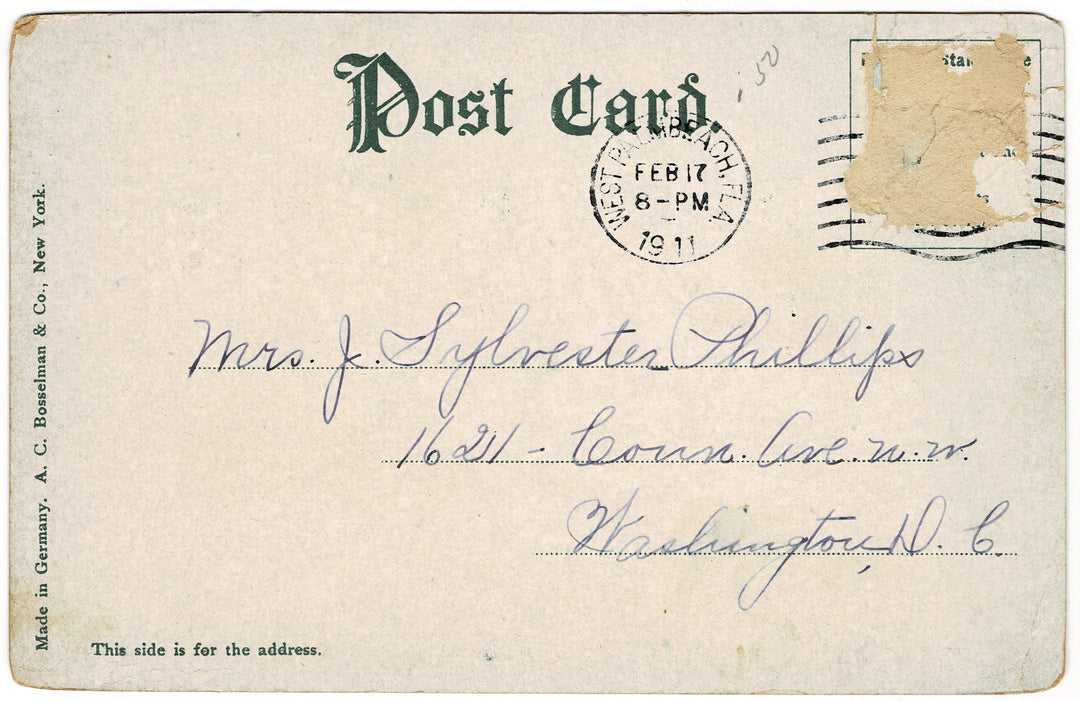 Post Card.
.50
WEST PALM BEACH, FLA.
FEB 17
8-PM
1911
Mrs. J. Sylvester Phillips
1621 - Conn. Ave. n. w.
Washington, D. C.
Made in Germany. A. C. Bosselman & Co., New York.
This side is for the address.